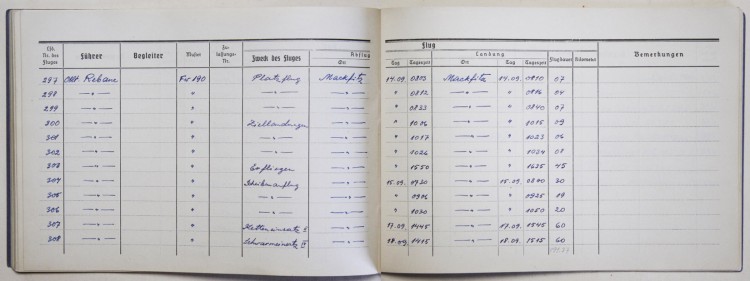 Flug
Lfd. Nr. des Fluges Führer Begleiter Muster Zulassungs-Nr. Zweck des Fluges Abflug Ort Tag Tageszeit Landung Ort Tag Tageszeit Flugdauer Kilometer Bemerkungen
297 Rebane Fw 190 Platzflug Mackfitz 14.09. 0803 Mackfitz 14.09. 0810 07
298 —"— " —"— —"— " 0812 —"— " 0816 04
299 —"— " —"— —"— " 0833 —"— " 0840 07
300 —"— " Ziellandungen —"— " 1006 —"— " 1015 09
301 —"— " —"— —"— " 1017 —"— " 1023 06
302 —"— " —"— —"— " 1026 —"— " 1034 08
303 —"— " —"— " 1550 —"— " 1635 45
304 —"— " —"— 15.09. —"— 15.09. 30
305 —"— " —"— —"— " 1906 —"— " 1925 19
306 —"— " —"— —"— " 1030 —"— " 1050 20
307 —"— " Ketteneinsatz —"— 17.09. 1445 —"— 17.09. 1545 60
308 —"— " Schwarmeinsatz —"— 18.09. 1415 —"— 18.09. 1515 60